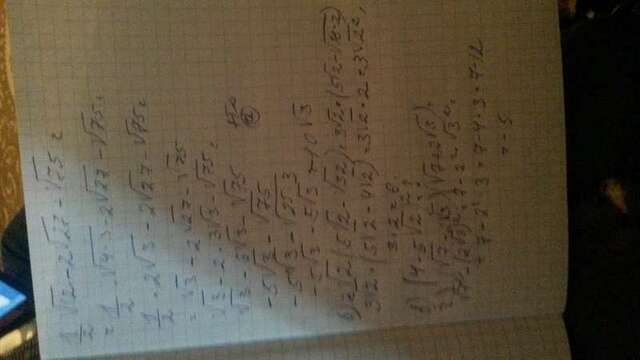 1/2 √12 - 2√27 - √75 =
= 1/2 · √4·3 - 2√27 - √75 =
1/2 · 2√3 - 2√27 - √75 =
= √3 - 2√27 - √75
√3 - 2·3√3 - √75 =
√3 - 6√3 - √75
а
-5√3 - √75
-5√3 - √25·3
-5√3 - 5√3 = -10√3
3√2 · (5√2 - 4√2) = 3√2 · √2 = 3√2² =
3·2 = 6
в) (4 - 5√2)² = ?
√7² - (2√3)² = 7 - 2² · √3² =
= 7 - 2² · 3 = 7 - 4·3 = 7 - 12
= -5